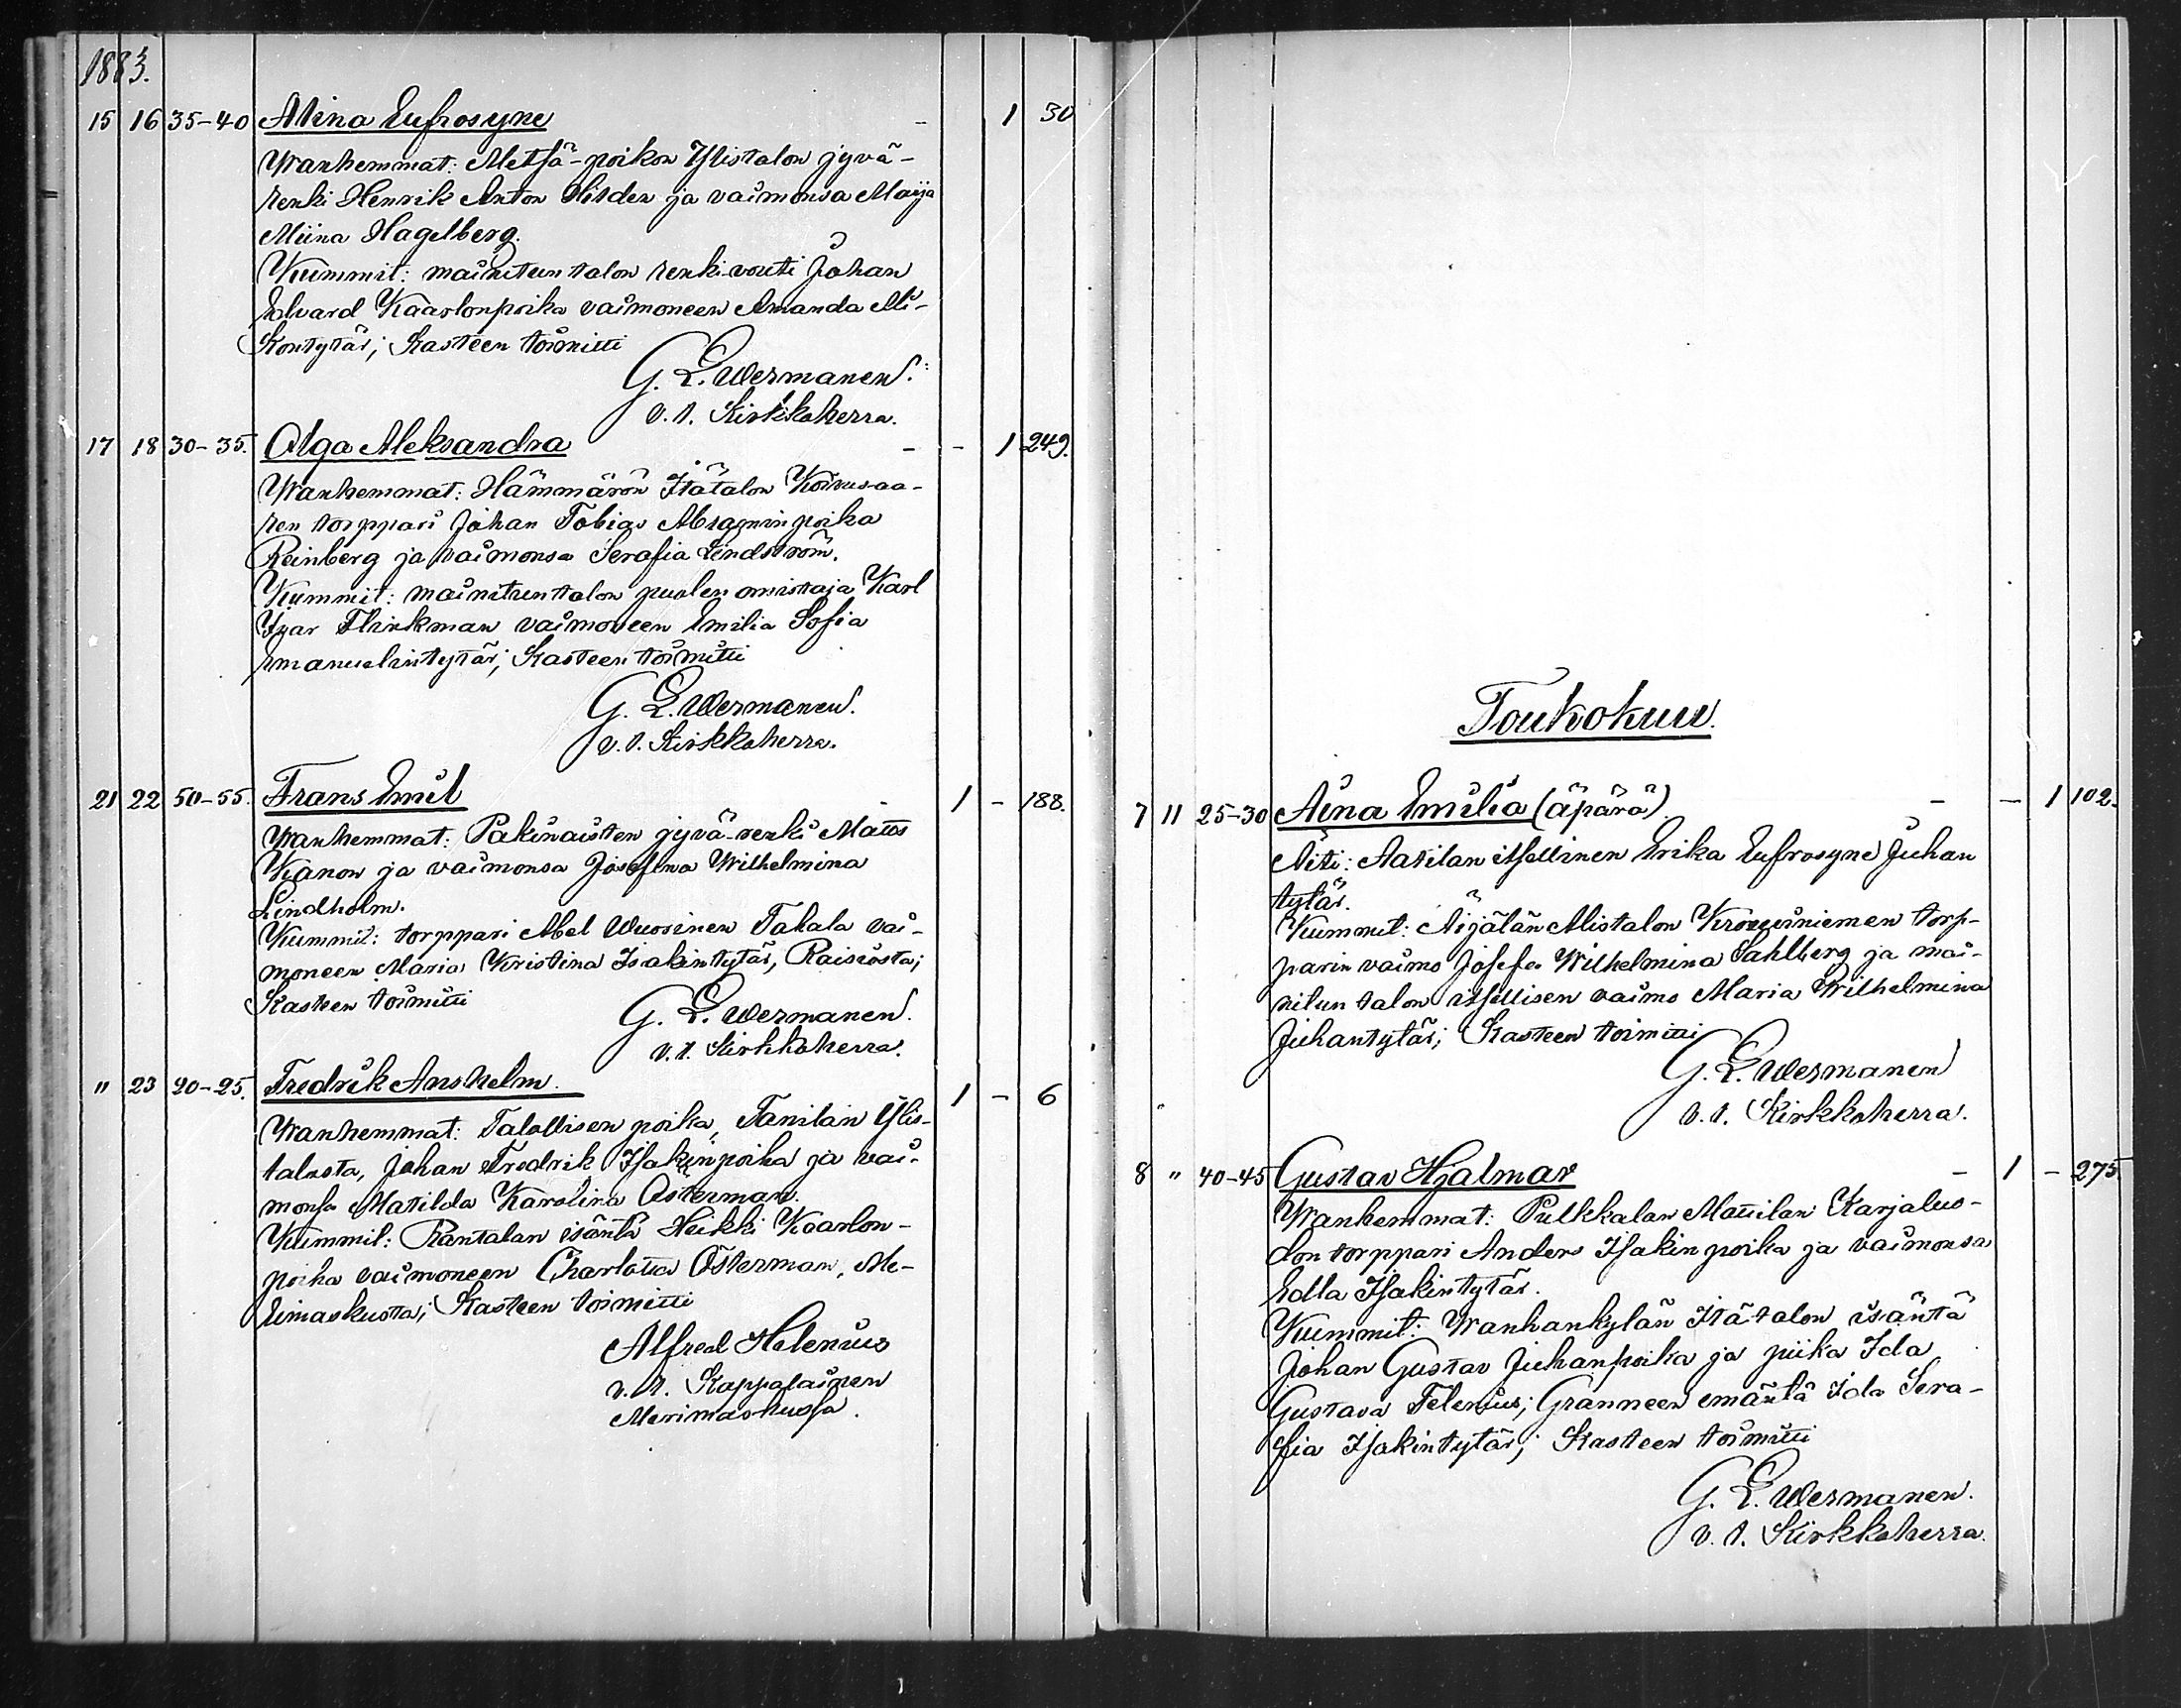 1883.
15 16 35-40 Miina Eufrosyne - 1 30
Wanhemmat: Metsä-poikon Ylistalon jyvä-
renki Henrik Anton Hildén ja vaimonsa Maija
Miina Hagelberg.
Kummit: mainitun talon renki-vouti Johan
Edvard Kaarlonpoika vaimoneen Amanda Mi-
kontytär; Kasteen toimitti
G. E. Wermanen.
v. t. Kirkkoherra.
17 18 30-35. Olga Aleksandra - - 1 249.
Wanhemmat: Hämmärön Itätalon Koivusaa-
ren torppari Johan Tobias Abraminpoika
Reinberg ja vaimonsa Serafia Lindström.
Kummit: mainitun talon puolen omistaja Karl
Ivar Flinkman vaimoneen Emilia Sofia
Emanuelintytär; Kasteen toimitti
G. E. Wermanen.
v. t. Kirkkoherra.
21 22 50-55. Frans Emil - 1 - 188.
Wanhemmat: Pakinaisten jyvä-renki Matts
Kanon ja vaimonsa Josefina Wilhelmina
Lindholm.
Kummit: torppari Abel Wuorinen Takala vai-
moneen Maria Kristina Isakintytär, Raisiosta;
Kasteen toimitti
G. E. Wermanen.
v. t. Kirkkoherra.
" 23 20-25. Fredrik Anshelm. 1 - 6
Wanhemmat: Talollisen poika, Tanilan Ylis-
talosta, Johan Fredrik Isakinpoika ja vai-
monsa Matilda Karolina Österman.
Kummit: Rantalan isäntä Heikki Kaarlon-
poika vaimoneen Charlotta Österman, Me-
rimaskusta; Kasteen toimitti
Alfred Helenius
v. t. Kappalainen
Merimaskussa.
Toukokuu.
7 11 25-30 Aina Emilia (äpärä) - - 1 102.
Äiti: Aatilan itsellinen Erika Eufrosyne Juhan
tytär.
Kummit: Äijälän Alistalon Krouviniemen torp-
parin vaimo Josefa Wilhelmina Sahlberg ja mai-
nitun talon itsellisen vaimo Maria Wilhelmina
Juhantytär; Kasteen toimitti
G. E. Wermanen
v. t. Kirkkoherra.
8 " 40-45 Gustav Hjalmar - 1 - 275.
Wanhemmat: Pulkkalan Mattilan Karjaluo-
don torppari Anders Isakinpoika ja vaimonsa
Edla Isakintytär.
Kummit: Wanhankylän Itä-talon isäntä
Johan Gustav Juhanpoika ja piika Ida
Gustava Felenius; Granneen emäntä Ida Sera-
fia Isakintytär; Kasteen toimitti
G. E. Wermanen.
v. t. Kirkkoherra.